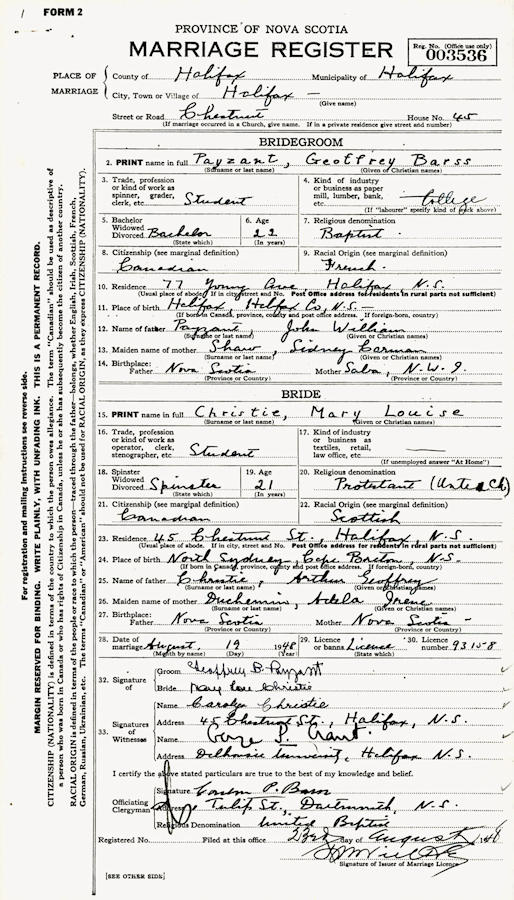 FORM 2
PROVINCE OF NOVA SCOTIA
MARRIAGE REGISTER
Reg. No. (Office use only)
003536
PLACE OF MARRIAGE
County of Halifax Municipality of Halifax
City, Town or Village of Halifax —
(Give name)
Street or Road Chestnut House No. 45
(If marriage occurred in a Church, give name. If in a private residence give street and number)
BRIDEGROOM
2. PRINT name in full Payzant, Geoffrey Barss
(Surname or last name) (Given or Christian names)
3. Trade, profession or kind of work as spinner, grader, clerk, etc. Student
4. Kind of industry or business as paper mill, lumber, bank, etc. College
(If "labourer" specify kind of work above)
5. Bachelor Widowed Divorced Bachelor
(State which)
6. Age 22
(In years)
7. Religious denomination
Baptist
8. Citizenship (see marginal definition)
Canadian
9. Racial Origin (see marginal definition)
French
10. Residence 77 Young Ave, Halifax, N.S.
(Usual place of abode. If in city, street and No. Post Office address for residents in rural parts not sufficient)
11. Place of birth Halifax, Halifax Co, N.S. —
(If born in Canada, province, county and post office address. If foreign-born, country)
12. Name of father Payzant, John William
(Surname or last name) (Given or Christian names)
13. Maiden name of mother Shaw, Sidney Carman
(Surname or last name) (Given or Christian names)
14. Birthplace: Father Nova Scotia Mother Saba, N.W.I.
(Province or Country) (Province or Country)
BRIDE
15. PRINT name in full Christie, Mary Louise
(Surname or last name) (Given or Christian names)
16. Trade, profession or kind of work as operator, clerk, stenographer, etc Student
17. Kind of industry or business as textiles, retail, law office, etc. —
(If unemployed answer "At Home")
18. Spinster Widowed Divorced Spinster
(State which)
19. Age 21
(In years)
20. Religious denomination
Protestant (United Ch)
21. Citizenship (see marginal definition)
Canadian
22. Racial Origin (see marginal definition)
Scottish
23. Residence 45 Chestnut St., Halifax, N.S.
(Usual place of abode. If in city, street and No. Post Office address for residents in rural parts not sufficient)
24. Place of birth North Sydney, Cape Breton, N.S.
(If born in Canada, province, county and post office address. If foreign-born, country)
25. Name of father Christie, Arthur Geoffrey
(Surname or last name) (Given or Christian names)
26. Maiden name of mother Duchemin, Adela Irene
(Surname or last name) (Given or Christian names)
27. Birthplace: Father Nova Scotia Mother Nova Scotia -
(Province or Country) (Province or Country)
28. Date of marriage August 19 1948
(Month by name) (Day) (Year)
29. Licence or banns License
30. Licence number 93158
32. Signature of
Groom Geoffrey B. Payzant
Bride Mary Lou Christie
33. Signatures of Witnesses
Name Carolyn Christie
Address 45 Chestnut St., Halifax, N.S.
Name George P. Grant
Address Dalhousie University, Halifax N.S.
I certify the above stated particulars are true to the best of my knowledge and belief.
Officiating Clergyman
Signature P. Barss
Address Tulip St., Dartmouth, N.S.
Religious Denomination United Baptist
Registered No. Filed at this office 23rd day of August 1948
Signature of Issuer of Marriage Licence
[SEE OTHER SIDE]
For registration and mailing instructions see reverse side.
MARGIN RESERVED FOR BINDING. WRITE PLAINLY, WITH UNFADING INK. THIS IS A PERMANENT RECORD.
CITIZENSHIP (NATIONALITY) is defined in terms of the country to which the person owes allegiance. The term "Canadian" should be used as descriptive of
a person who was born in Canada or who has rights of Citizenship in Canada, unless he or she has subsequently become the citizen of another country.
RACIAL ORIGIN is defined in terms of the people or race to which the person—traced through the father—belongs, whether English, Irish, Scottish, French,
German, Russian, Ukrainian, etc. The terms "Canadian" or "American" should not be used for RACIAL ORIGIN, as they express CITIZENSHIP (NATIONALITY).